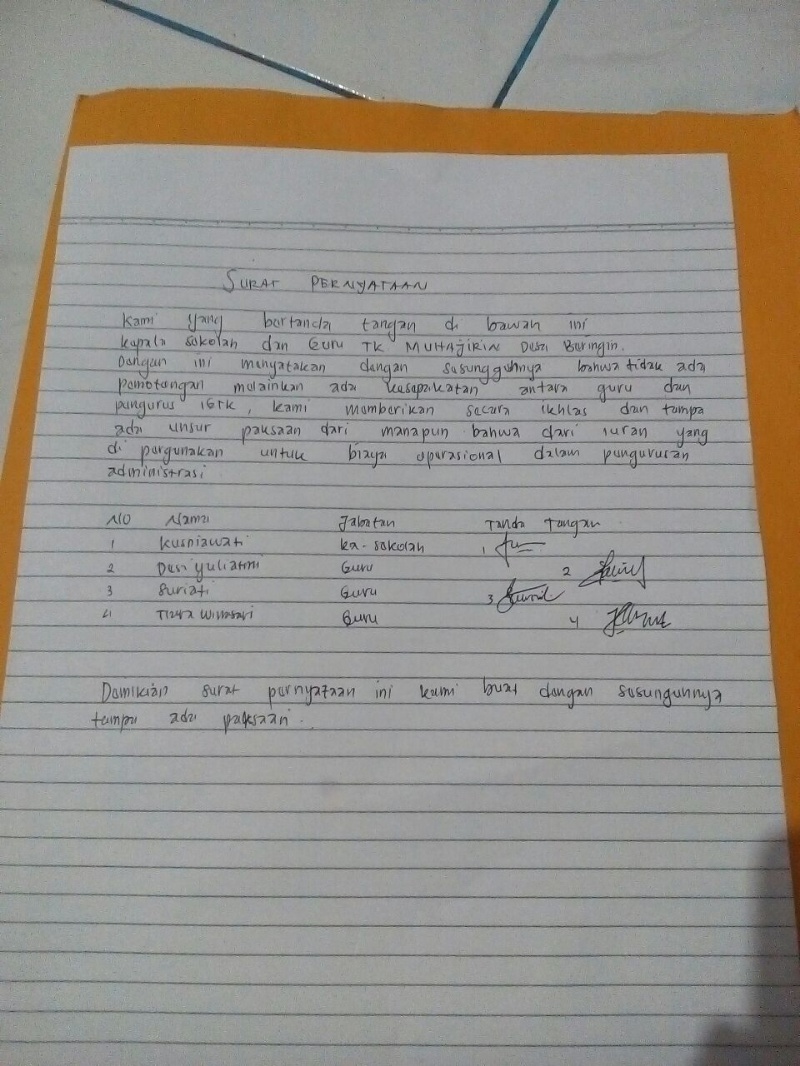 SURAT PERNYATAAN
Kami yang bertanda tangan di bawah ini
kepala sekolah dan Guru TK. MUHAJIRIN Desa Beringin.
Dengan ini menyatakan dengan sesungguhnya bahwa tidak ada
pemotongan melainkan ada kesepakatan antara guru dan
pengurus IGTK, kami memberikan secara ikhlas dan tampa
ada unsur paksaan dari manapun bahwa dari iuran yang
di pergunakan untuk biaya operasional dalam pengurusan
administrasi
NO Nama Jabatan Tanda Tangan
1 Kusniawati ka-sekolah 1
2 Desi yuliarmi Guru 2
3 Suriati Guru 3
4 Guru 4
Demikian surat pernyataan ini kami buat dengan sesungunnya
tampa ada paksaan.